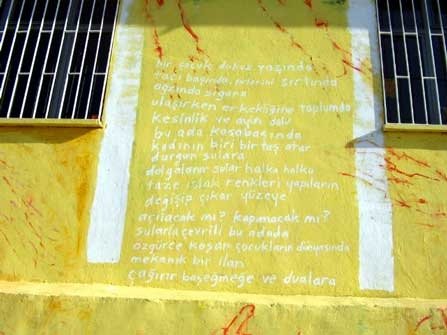 bir çocuk dokuz yaşında
tacı başında, pelerini sırtında
ağzında sigara
ulaşırken erkekliğine toplumda
kesinlik ve aşin dolu
bu ada kasabasında
kadının biri bir taş atar
durgun sulara
dalgalanır sular halka halka
taze ıslak renkleri yapıların
değişip çıkar yüzeye
açılacak mı? kapanacak mı?
sularla çevrili bu adada
özgürce koşar çocukların dünyasında
mekanik bir ilan
çağırır başeğmeğe ve dualara